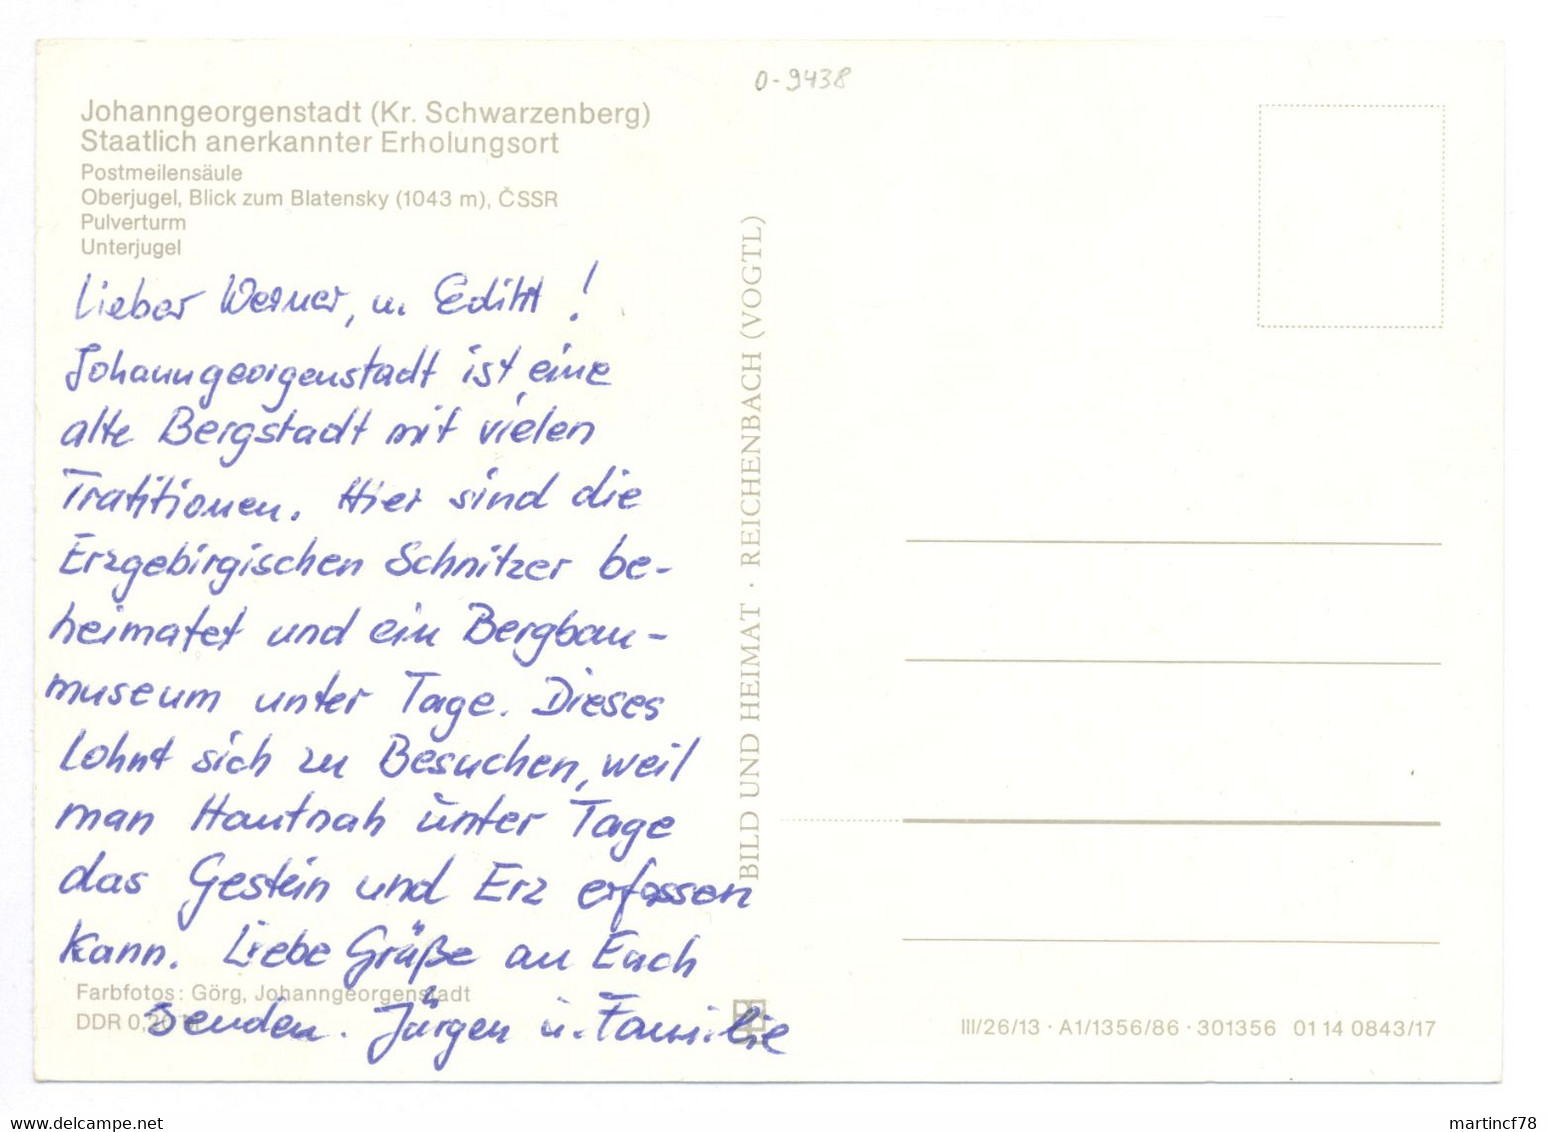 0-9438
Johanngeorgenstadt (Kr. Schwarzenberg)
Staatlich anerkannter Erholungsort
Postmeilensäule
Oberjugel, Blick zum Blatensky (1043 m), ČSSR
Pulverturm
Unterjugel
Lieber Werner, u. Edith !
Johanngeorgenstadt ist eine
alte Bergstadt mit vielen
Tratitionen. Hier sind die
Erzgebirgischen Schnitzer be-
heimatet und ein Bergbau-
museum unter Tage. Dieses
Lohnt sich zu Besuchen, weil
man Hautnah unter Tage
das Gestein und Erz erfassen
kann. Liebe Grüße an Euch
senden. Jürgen u. Familie
Farbfotos: Görg, Johanngeorgenstadt
DDR 0,20 M
BILD UND HEIMAT · REICHENBACH (VOGTL)
III/26/13 · A1/1356/86 · 301356 01 14 0843/17
martincf78